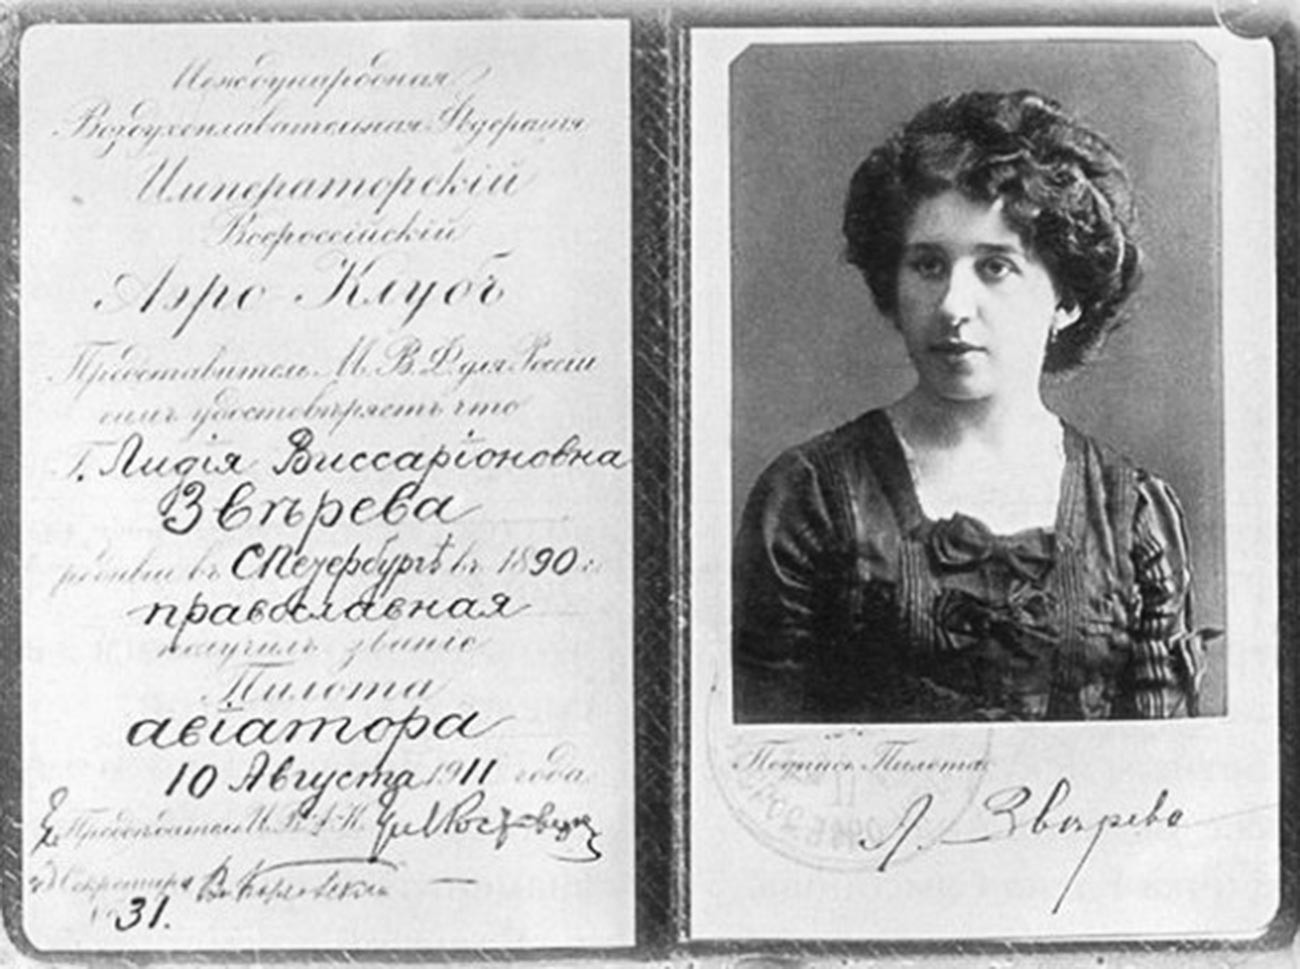 Международная
Воздухоплавательная Ѳедерація
Императорскій
Всероссійскій
Аэро Клубъ
Представитель М. В. Ф. для Россіи
симъ удостовѣряетъ что
Г. Лидія Виссаріоновна
Звѣрева
въ СПетербургѣ въ 1890 г.
православная
получилъ званіе
Пилота
авіатора
10 Августа 1911 года
Предсѣдателя И. В. А. К.
Секретарь
31.
Подпись Пилота
Л. Звѣрева